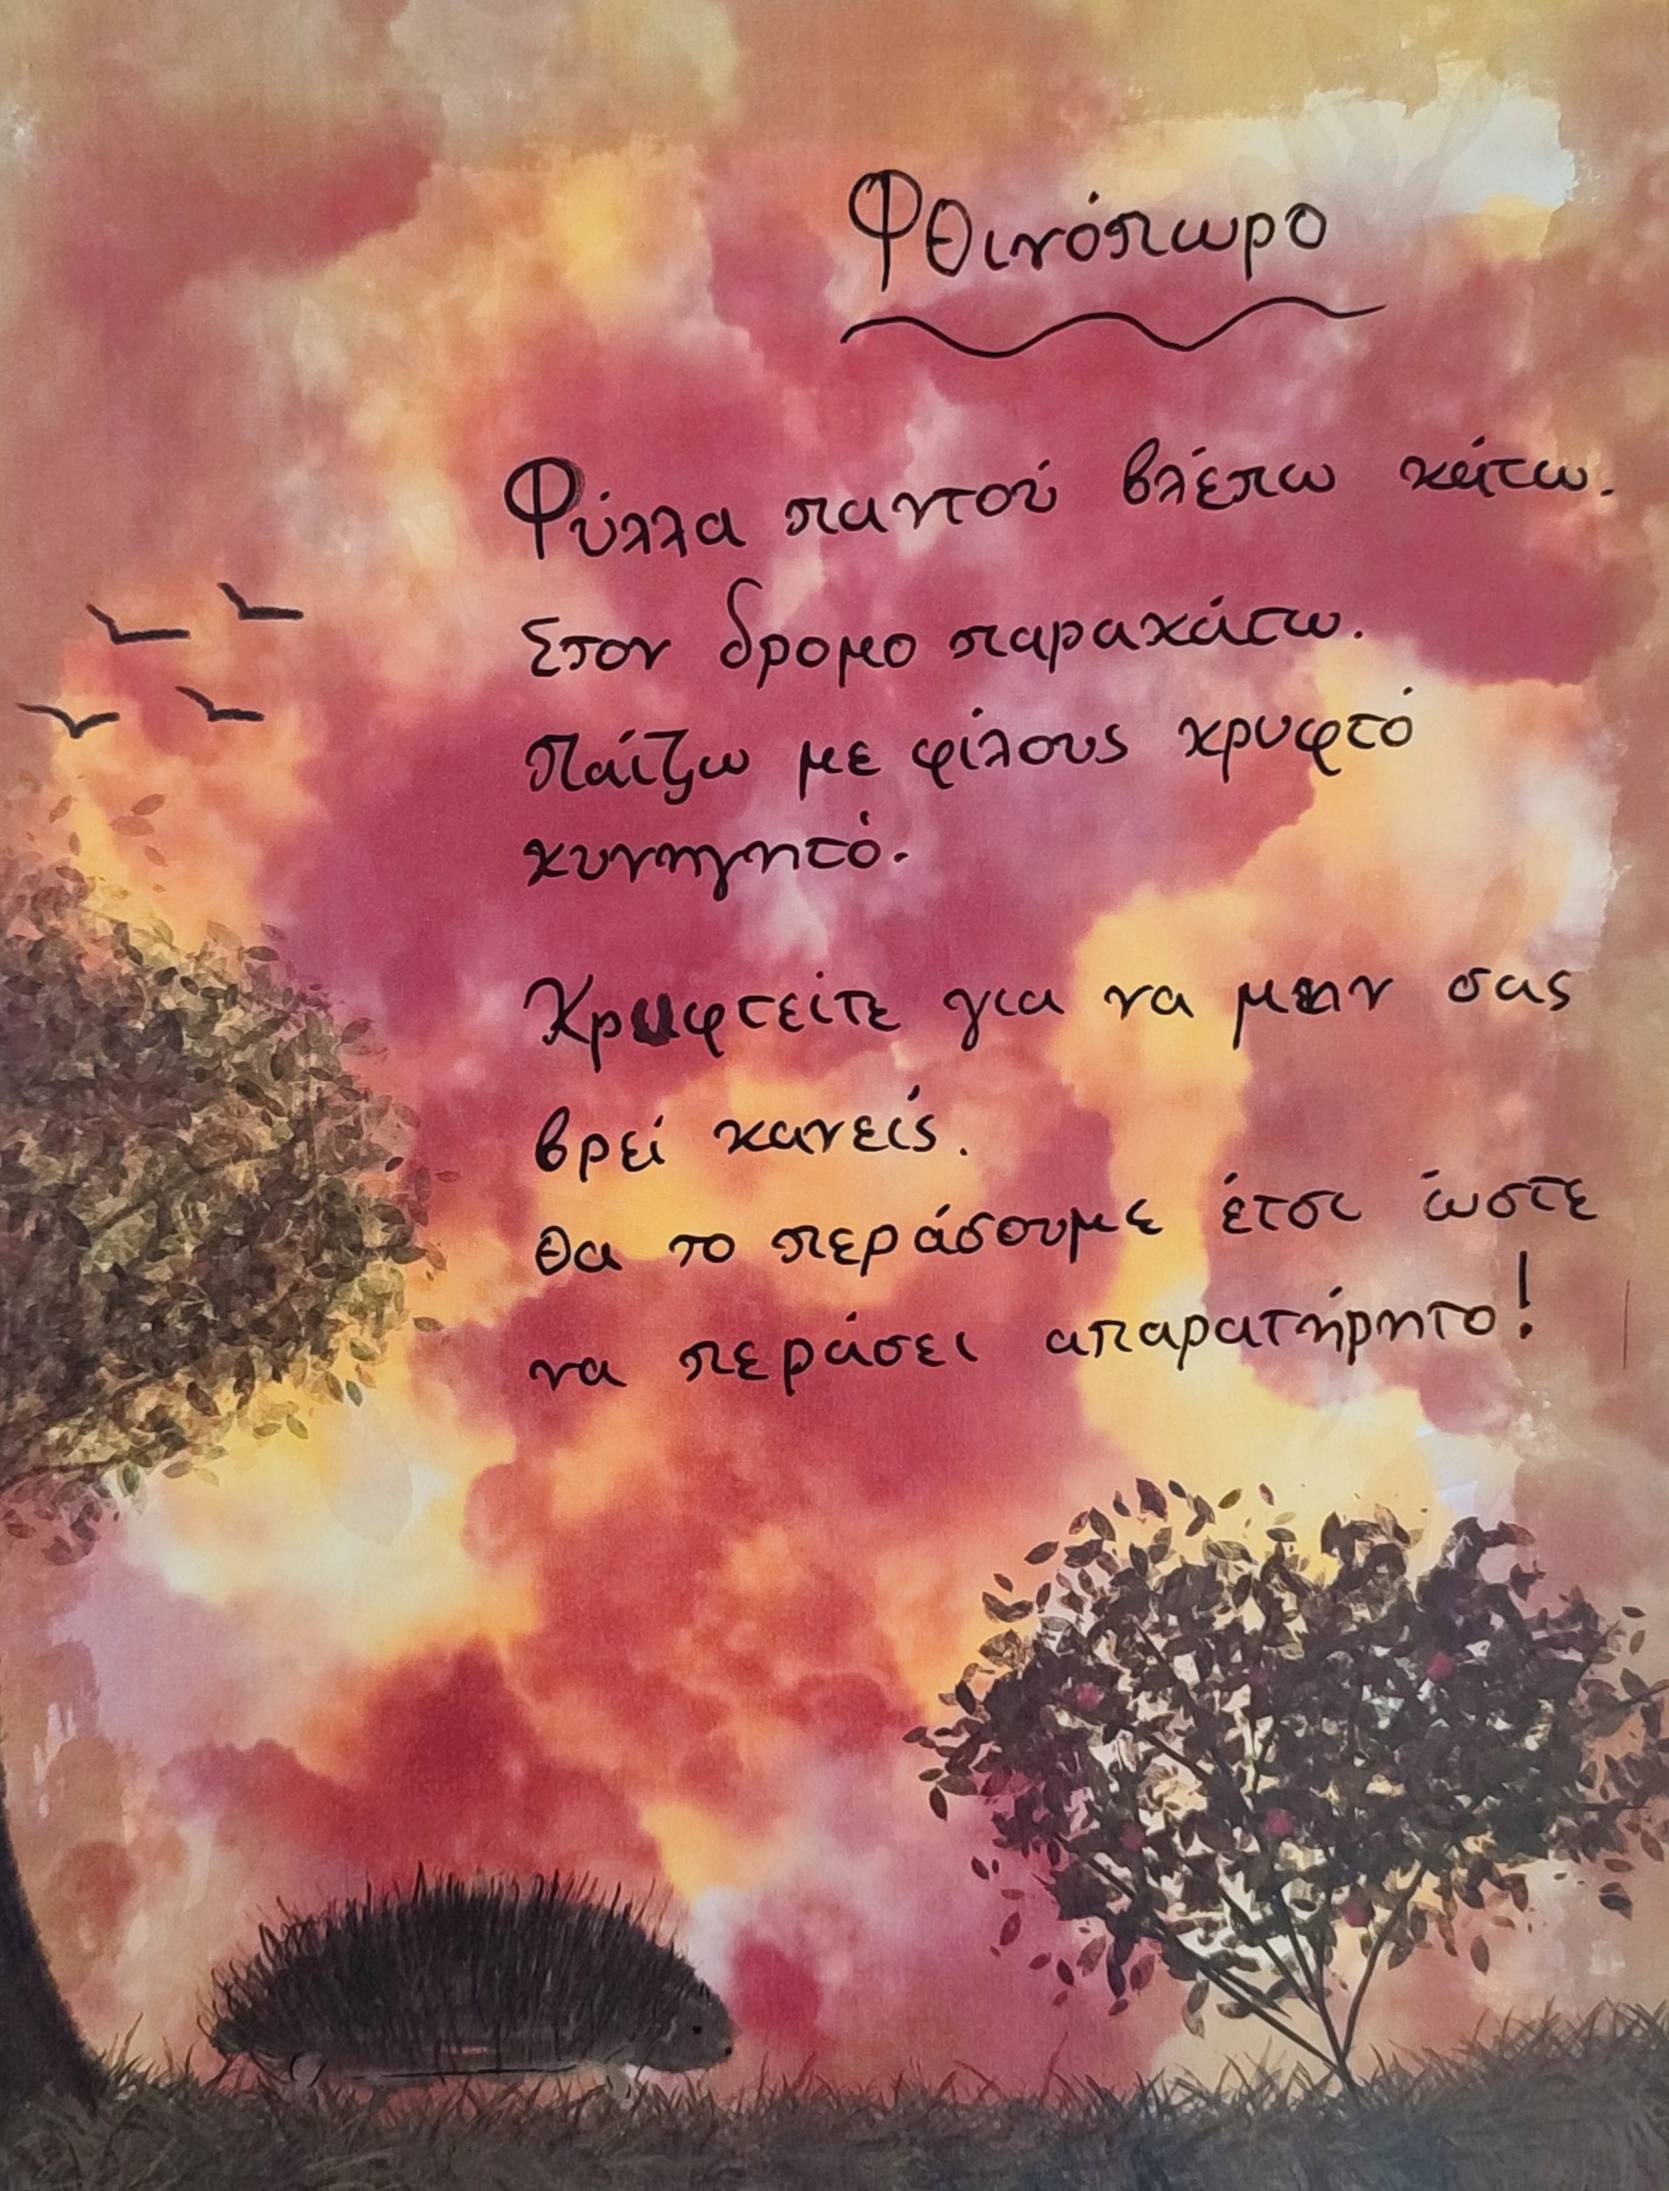 Φθινόπωρο
Φύλλα παντού βλέπω κάτω.
Στον δρομο παρακάτω.
Παίζω με φίλους κρυφτό
κυνηγητό.
Κρυφτείτε για να μην σας
βρεί κανείς.
Θα το περάσουμε έτσι ώστε
να περάσει απαρατήρητο!